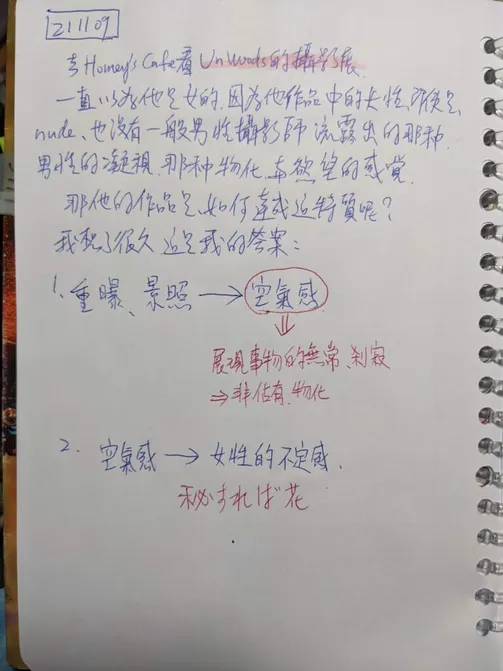 211109
去Homey's Cafe看Unwoods的攝影展.
一直以為他是女的,因為他作品中的女性,即使是
nude,也沒有一般男性攝影師流露出的那种
男性的凝視,那种物化、有欲望的感覚.
那他的作品是如何達成這特質呢?
我想了很久,這是我的答案:
1. 重曝、景照 → 空氣感
⇓
展現事物的無常、剎寂
⇒ 非佔有、物化
2. 空氣感 → 女性的不定感.
秘すれば花